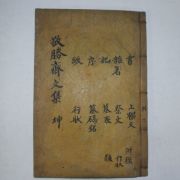 書 上樑文 附錄
雜著 祭文 行狀
記 墓表
序 墓碣銘
跋 行狀
敬勝齋文集 坤